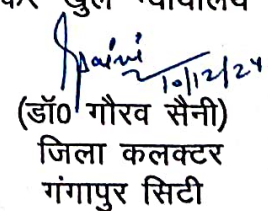 खुले न्यायालय
10/12/24
(डॉ0 गौरव सैनी)
जिला कलक्टर
गंगापुर सिटी